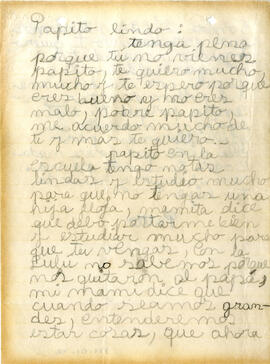 Papito lindo:
tengo pena
porque tú no vienes
papito, te quiero mucho,
mucho y te espero porque
eres bueno y no eres
malo, pobre papito,
me acuerdo mucho de
ti y mas te quiero.
papito en la
escuela tengo notas
lindas y estudio mucho
para que no tengas una
hija floja, mamita dice
que debo portarme bien
y estudiar mucho para
que tu vengas, con la
Lulú no sabemos porque
nos quitaron al papá,
mi mami dice que
cuando seamos gran-
des, entenderemos
estar cosas, que ahora